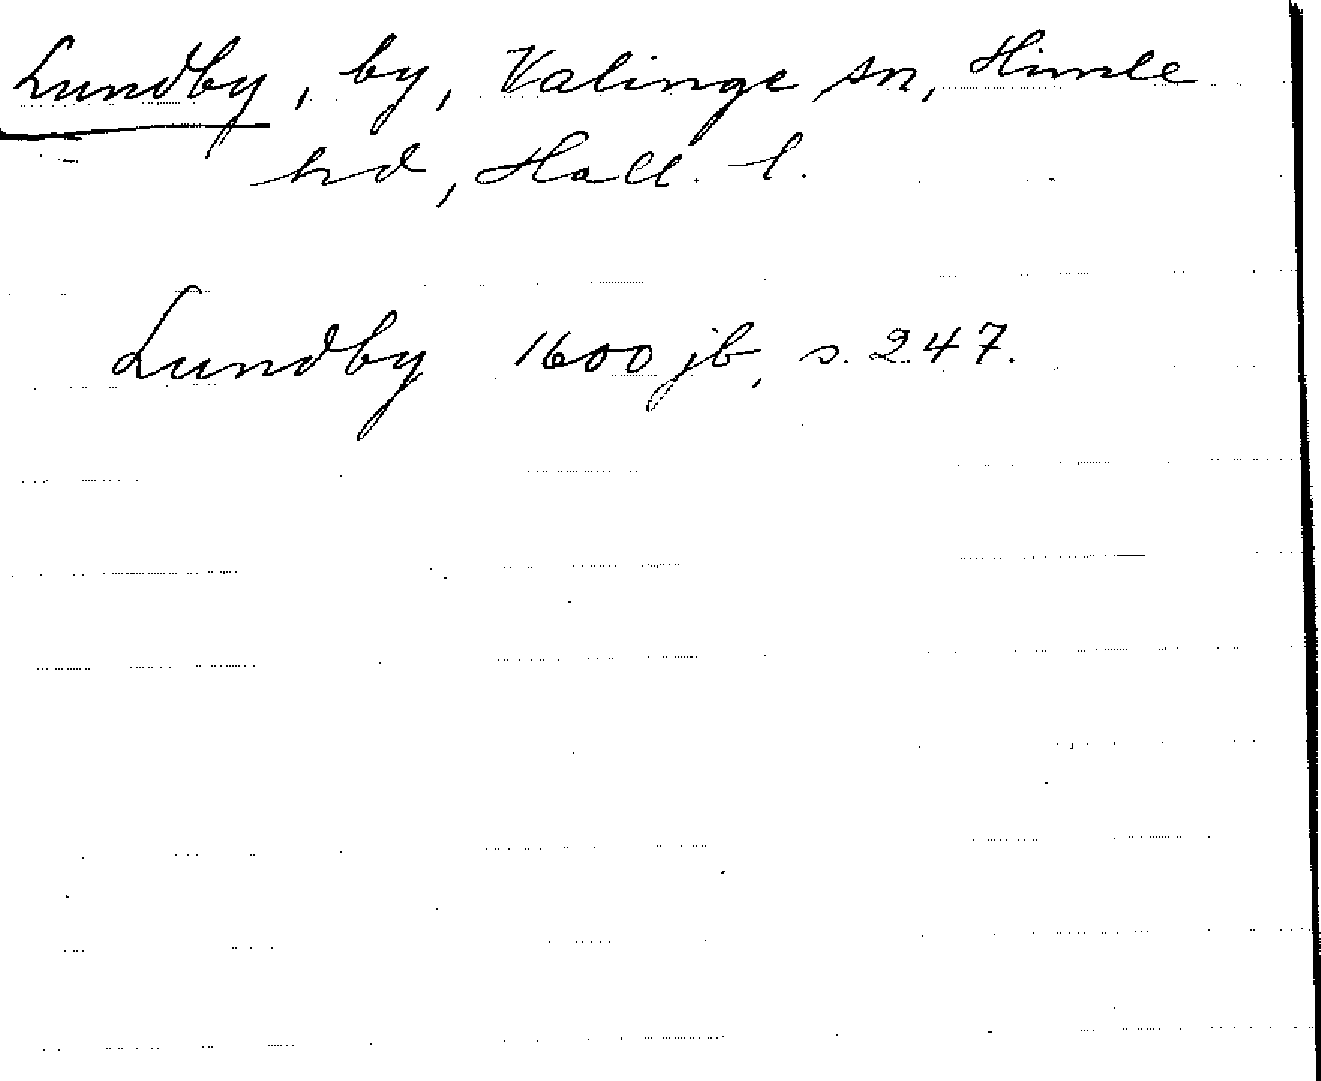 Lundby, by, Valinge sn, Himle
hd, Hall. l.
Lundby 1600 jb, s. 247.